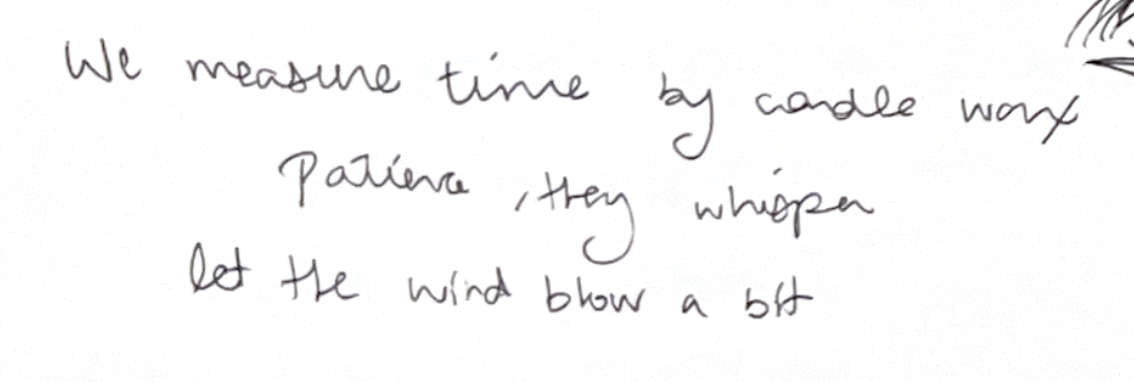 We measure time by candle wax
Patience, they whisper
let the wind blow a bit